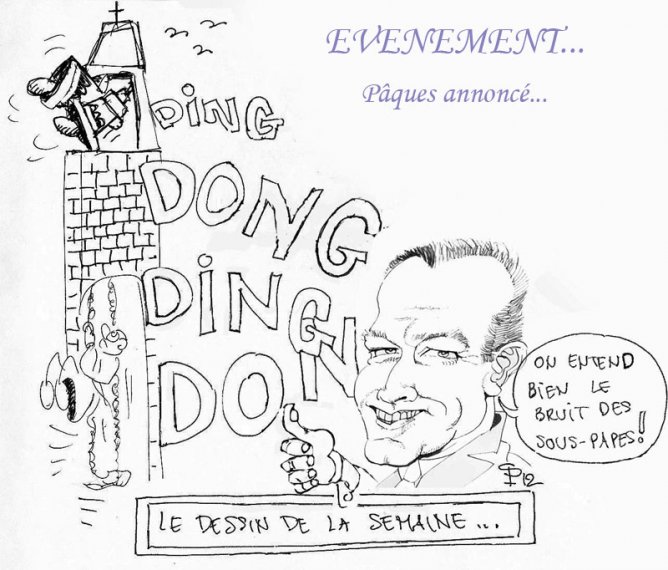 EVENEMENT...
Pâques annoncé...
DING
DONG
DING
DONG
ON ENTEND
BIEN LE
BRUIT DES
SOUS-PAPES!
12
LE DESSIN DE LA SEMAINE...